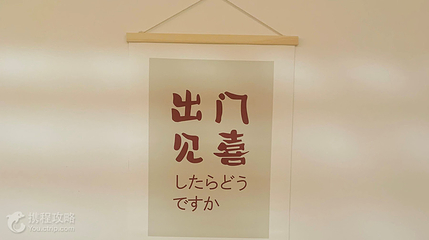 出门
见喜
したらどう
ですか
携程攻略
Youtrip.com